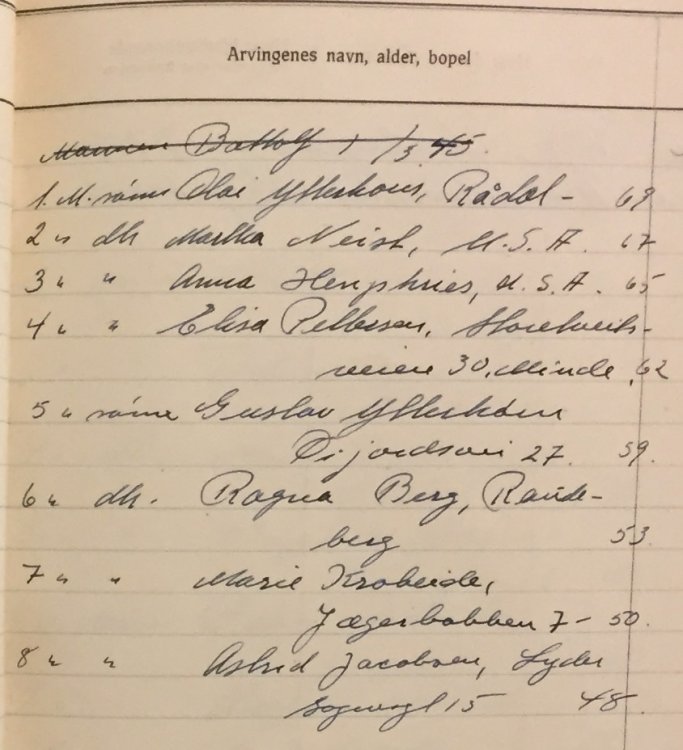 Arvingenes navn, alder, bopel
Mannen Battolf 1 1/3 45
1. M. sønn Olai Ytterhous, Rådal - 69
2 " dtr Martha Neist, U.S.A. 67
3 " " Anna Henphries, U.S.A. 65
4 " " Elisa Pettersen, Storetveits-
veien 30, Minde, 62
5 " sønn Gustav Ytterhous
27. 59.
6 " dtr. Ragna Berg, Rande-
berg 53.
7 " " Marie Krabeide,
Jægerbakken 7 - 50.
8 " " Astrid Jacobsen, Lyder
Sagensgt 15 48.